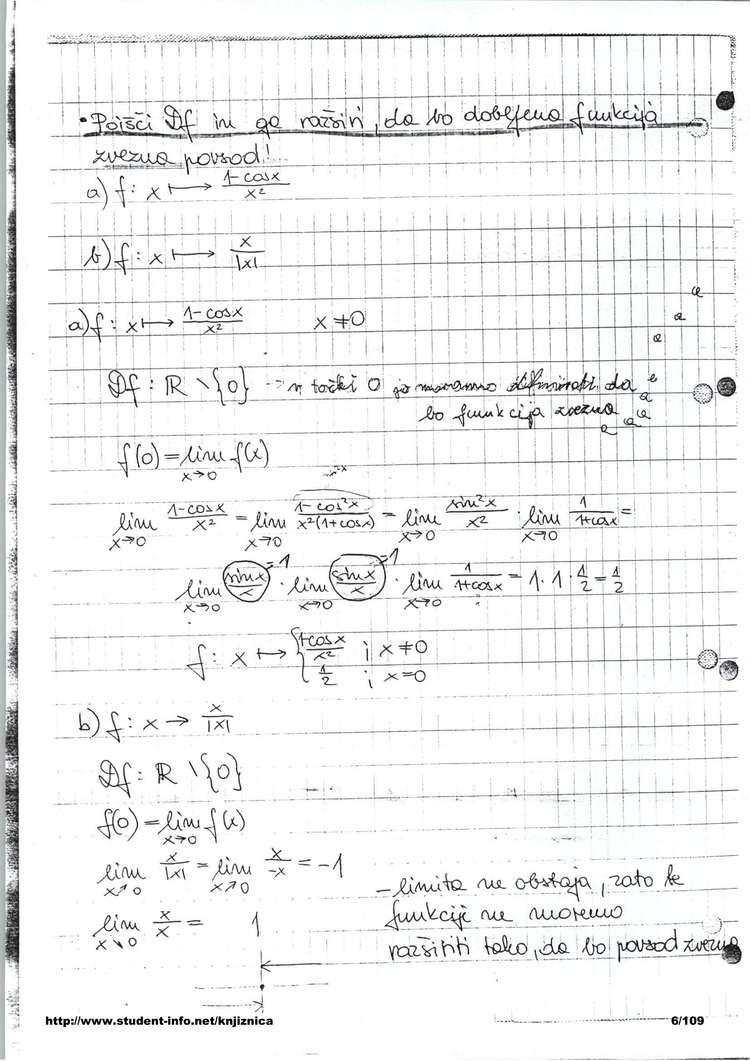 • Poišči Df in ga razširi, da bo dobljena funkcija
zvezna povsod!
a) f: x ↦ 1-cosx/x²
b) f: x ↦ x/|x|
a) f: x ↦ 1-cosx/x² x≠0
Df: ℝ \ {0} → v točki 0 jo moramo definirati, da
bo funkcija zvezna
f(0) = lim x→0 f(x)
lim x→0 1-cosx/x² = lim x→0 1-cos²x/x²(1+cosx) = lim x→0 sin²x/x² · lim x→0 1/1+cosx =
lim x→0 sinx/x =1 · lim x→0 sinx/x =1 · lim x→0 1/1+cosx = 1·1·1/2 = 1/2
f: x ↦ { 1-cosx/x² ; x≠0
1/2 ; x=0
b) f: x → x/|x|
Df: ℝ \ {0}
f(0) = lim x→0 f(x)
lim x↗0 x/|x| = lim x↗0 x/-x = -1
- limita ne obstaja, zato te
lim x↘0 x/x = 1
funkcije ne moremo
razširiti tako, da bo povsod zvezna
http://www.student-info.net/knjiznica 6/109